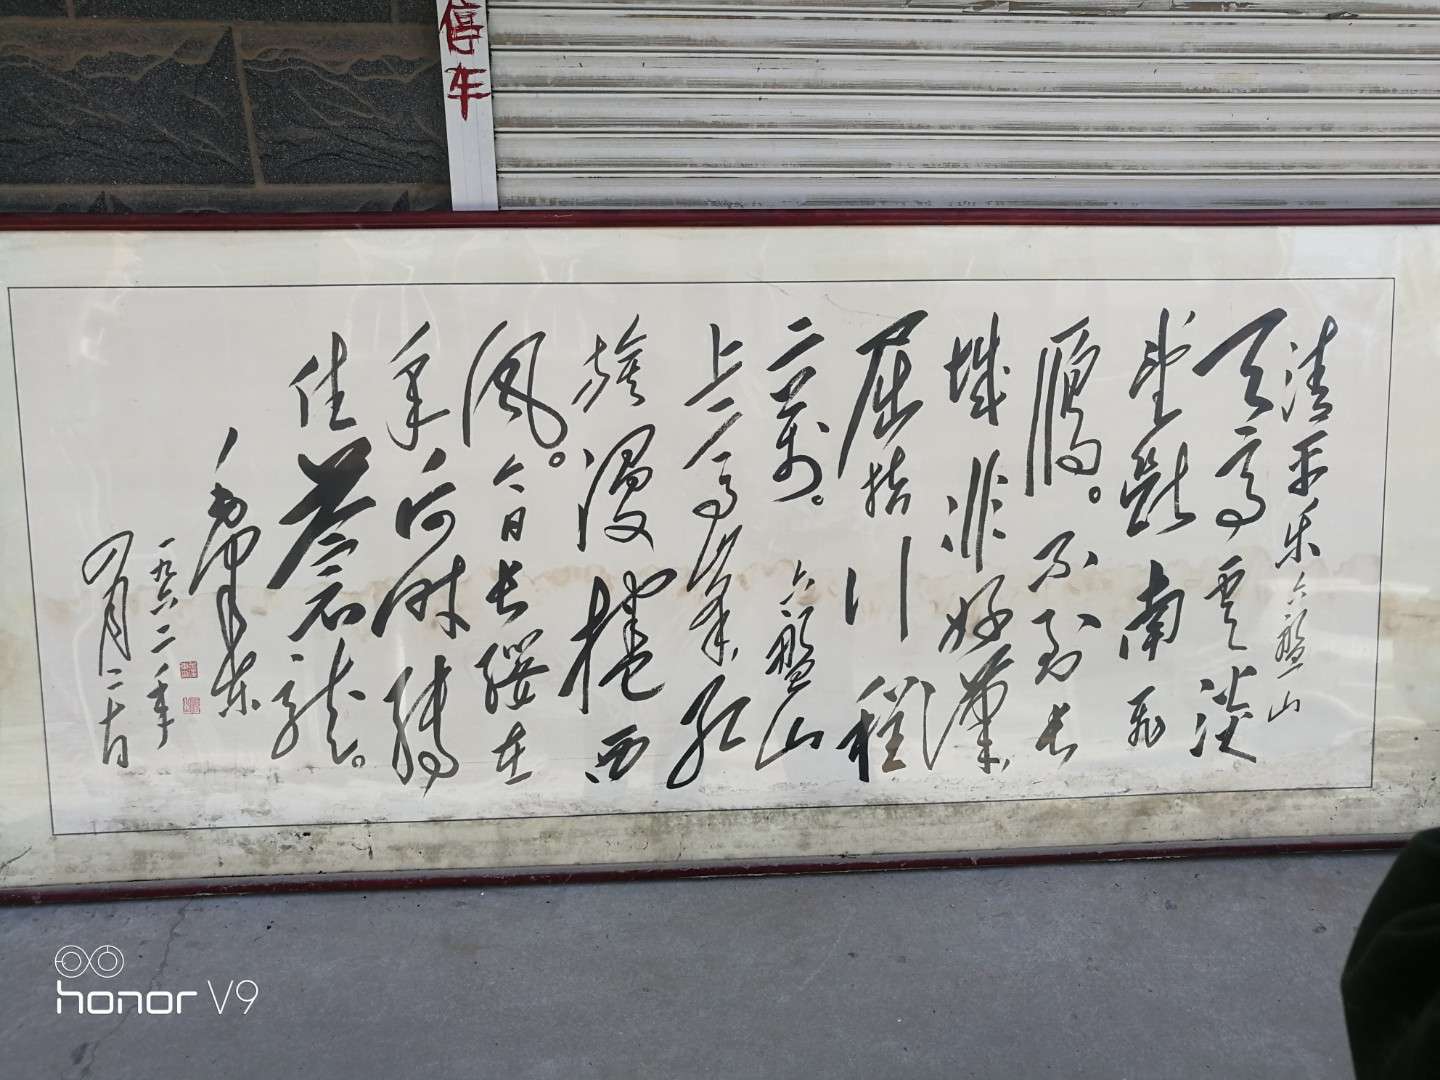 停车
清平乐 六盤山
天高云淡
望断南飞
雁。不到长
城非好漢
屈指行程
二萬。六盤山
上高峯红
旗漫捲西
风。今日长缨在
手何时缚
住蒼龙。
毛泽东
一九六二年
四月二十日
honor V9